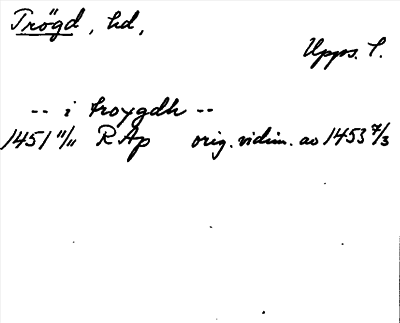 Trögd, hd,
Upps. l.
-- i troygdh --
1451 11/11 RAp orig. vidim. av 1453 7/3